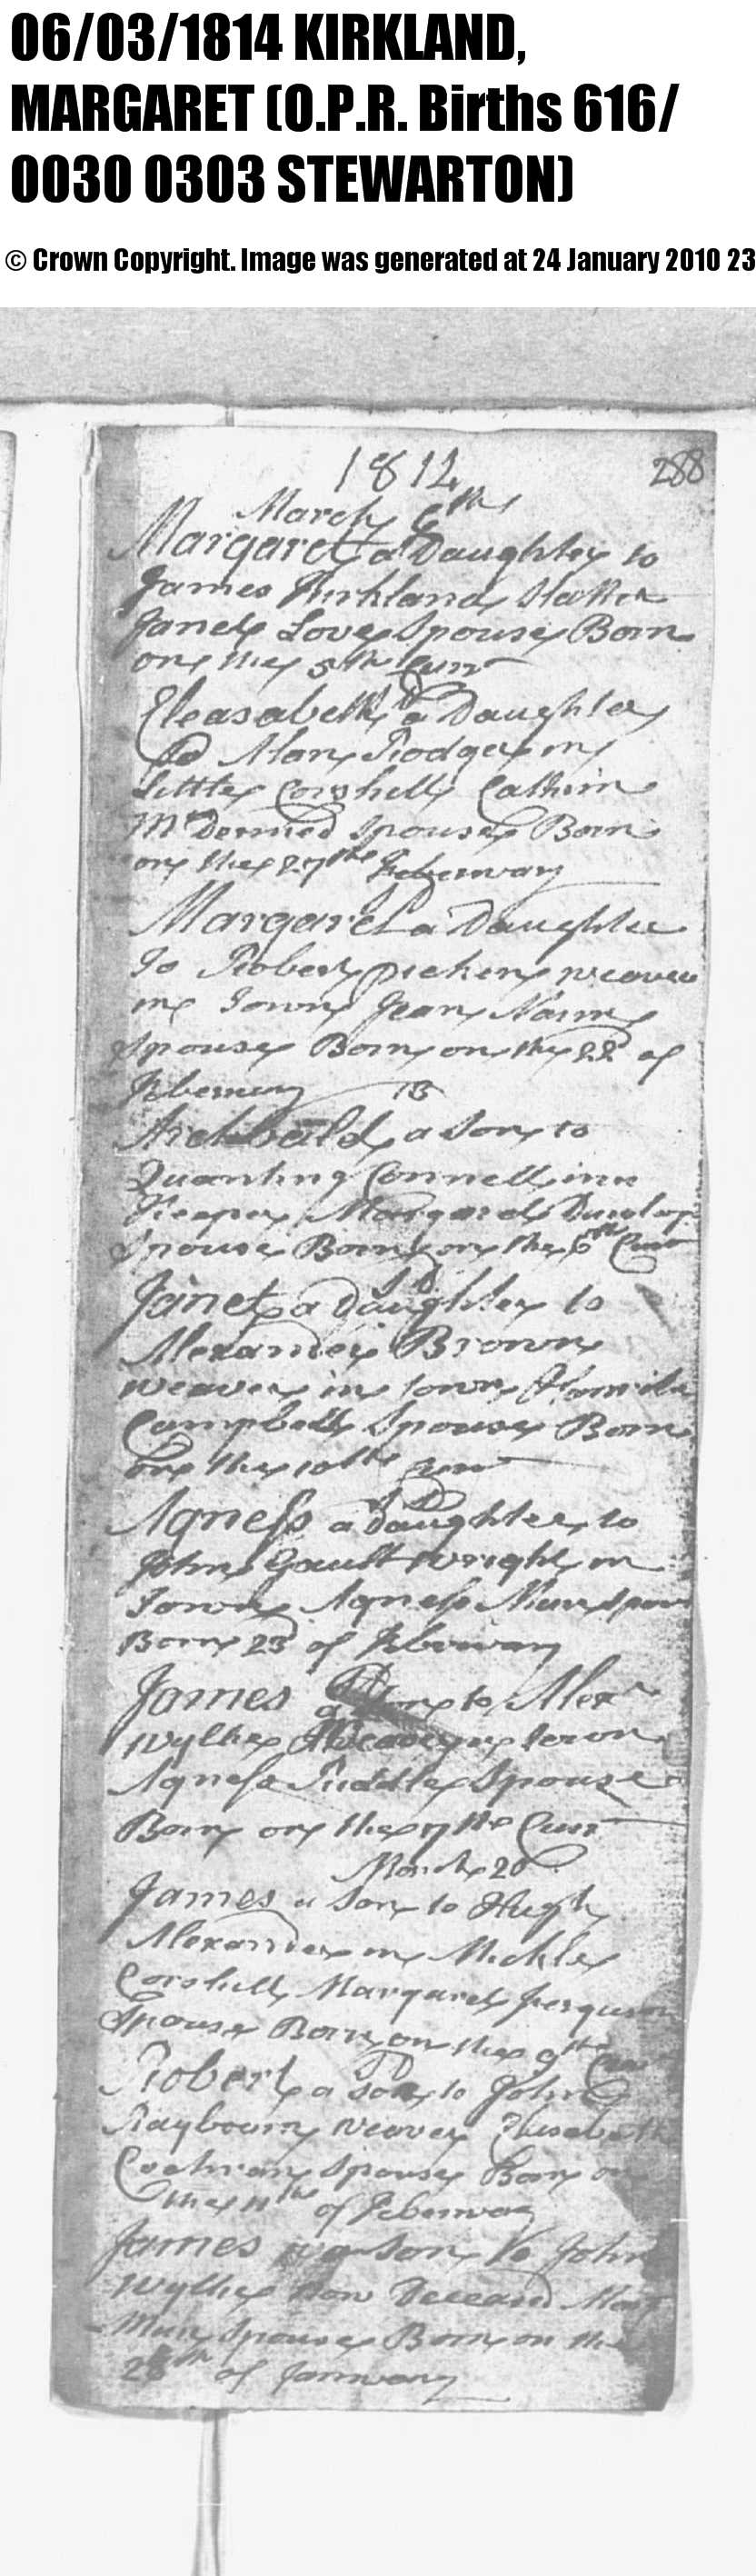 06/03/1814 KIRKLAND,
MARGARET (O.P.R. Births 616/
0030 0303 STEWARTON)
© Crown Copyright. Image was generated at 24 January 2010 23
1814 288
March 6th
Margaret a Daughter to
James Kirkland
Janet Love Spouse Born
on the 5th Curr
Eleasabeth a Daughter
to Alan Rodger in
Little Corshill Cathrin
McDermed Spouse Born
on the 27th Feberwary
Margaret a Daughter
To Robert Picken weaver
in Town Jean Nairn
Spouse Born on the 22 of
Feberwary 13
Archbald a Son to
Quanting Connell inn
Keeper Margaret Dunlop
Spouse Born on the 6th Curr
Janet a Daughter to
Alexander Brown
weaver in town
Campbell Spouse Born
on the 10th Curr
Agness a Daughter to
John Gault wright in
Town Agness Muir Spous
Born 23 of Feberwary
James a Son to Alexr
Wyllie Weaver in town
Agness Spouse
Born on the 7th Curr
March 20
James a Son to Hugh
Alexander in Mickle
Corshill Margaret Ferguson
Spouse Born on the 9th Curr
Robert a son to John
Raybourn weaver Elisabeth
Cochran Spouse Born on
the 11th of Feberwary
James a Son to John
Wyllie now Deceased
Muir Spouse Born on the
28th of Janwary